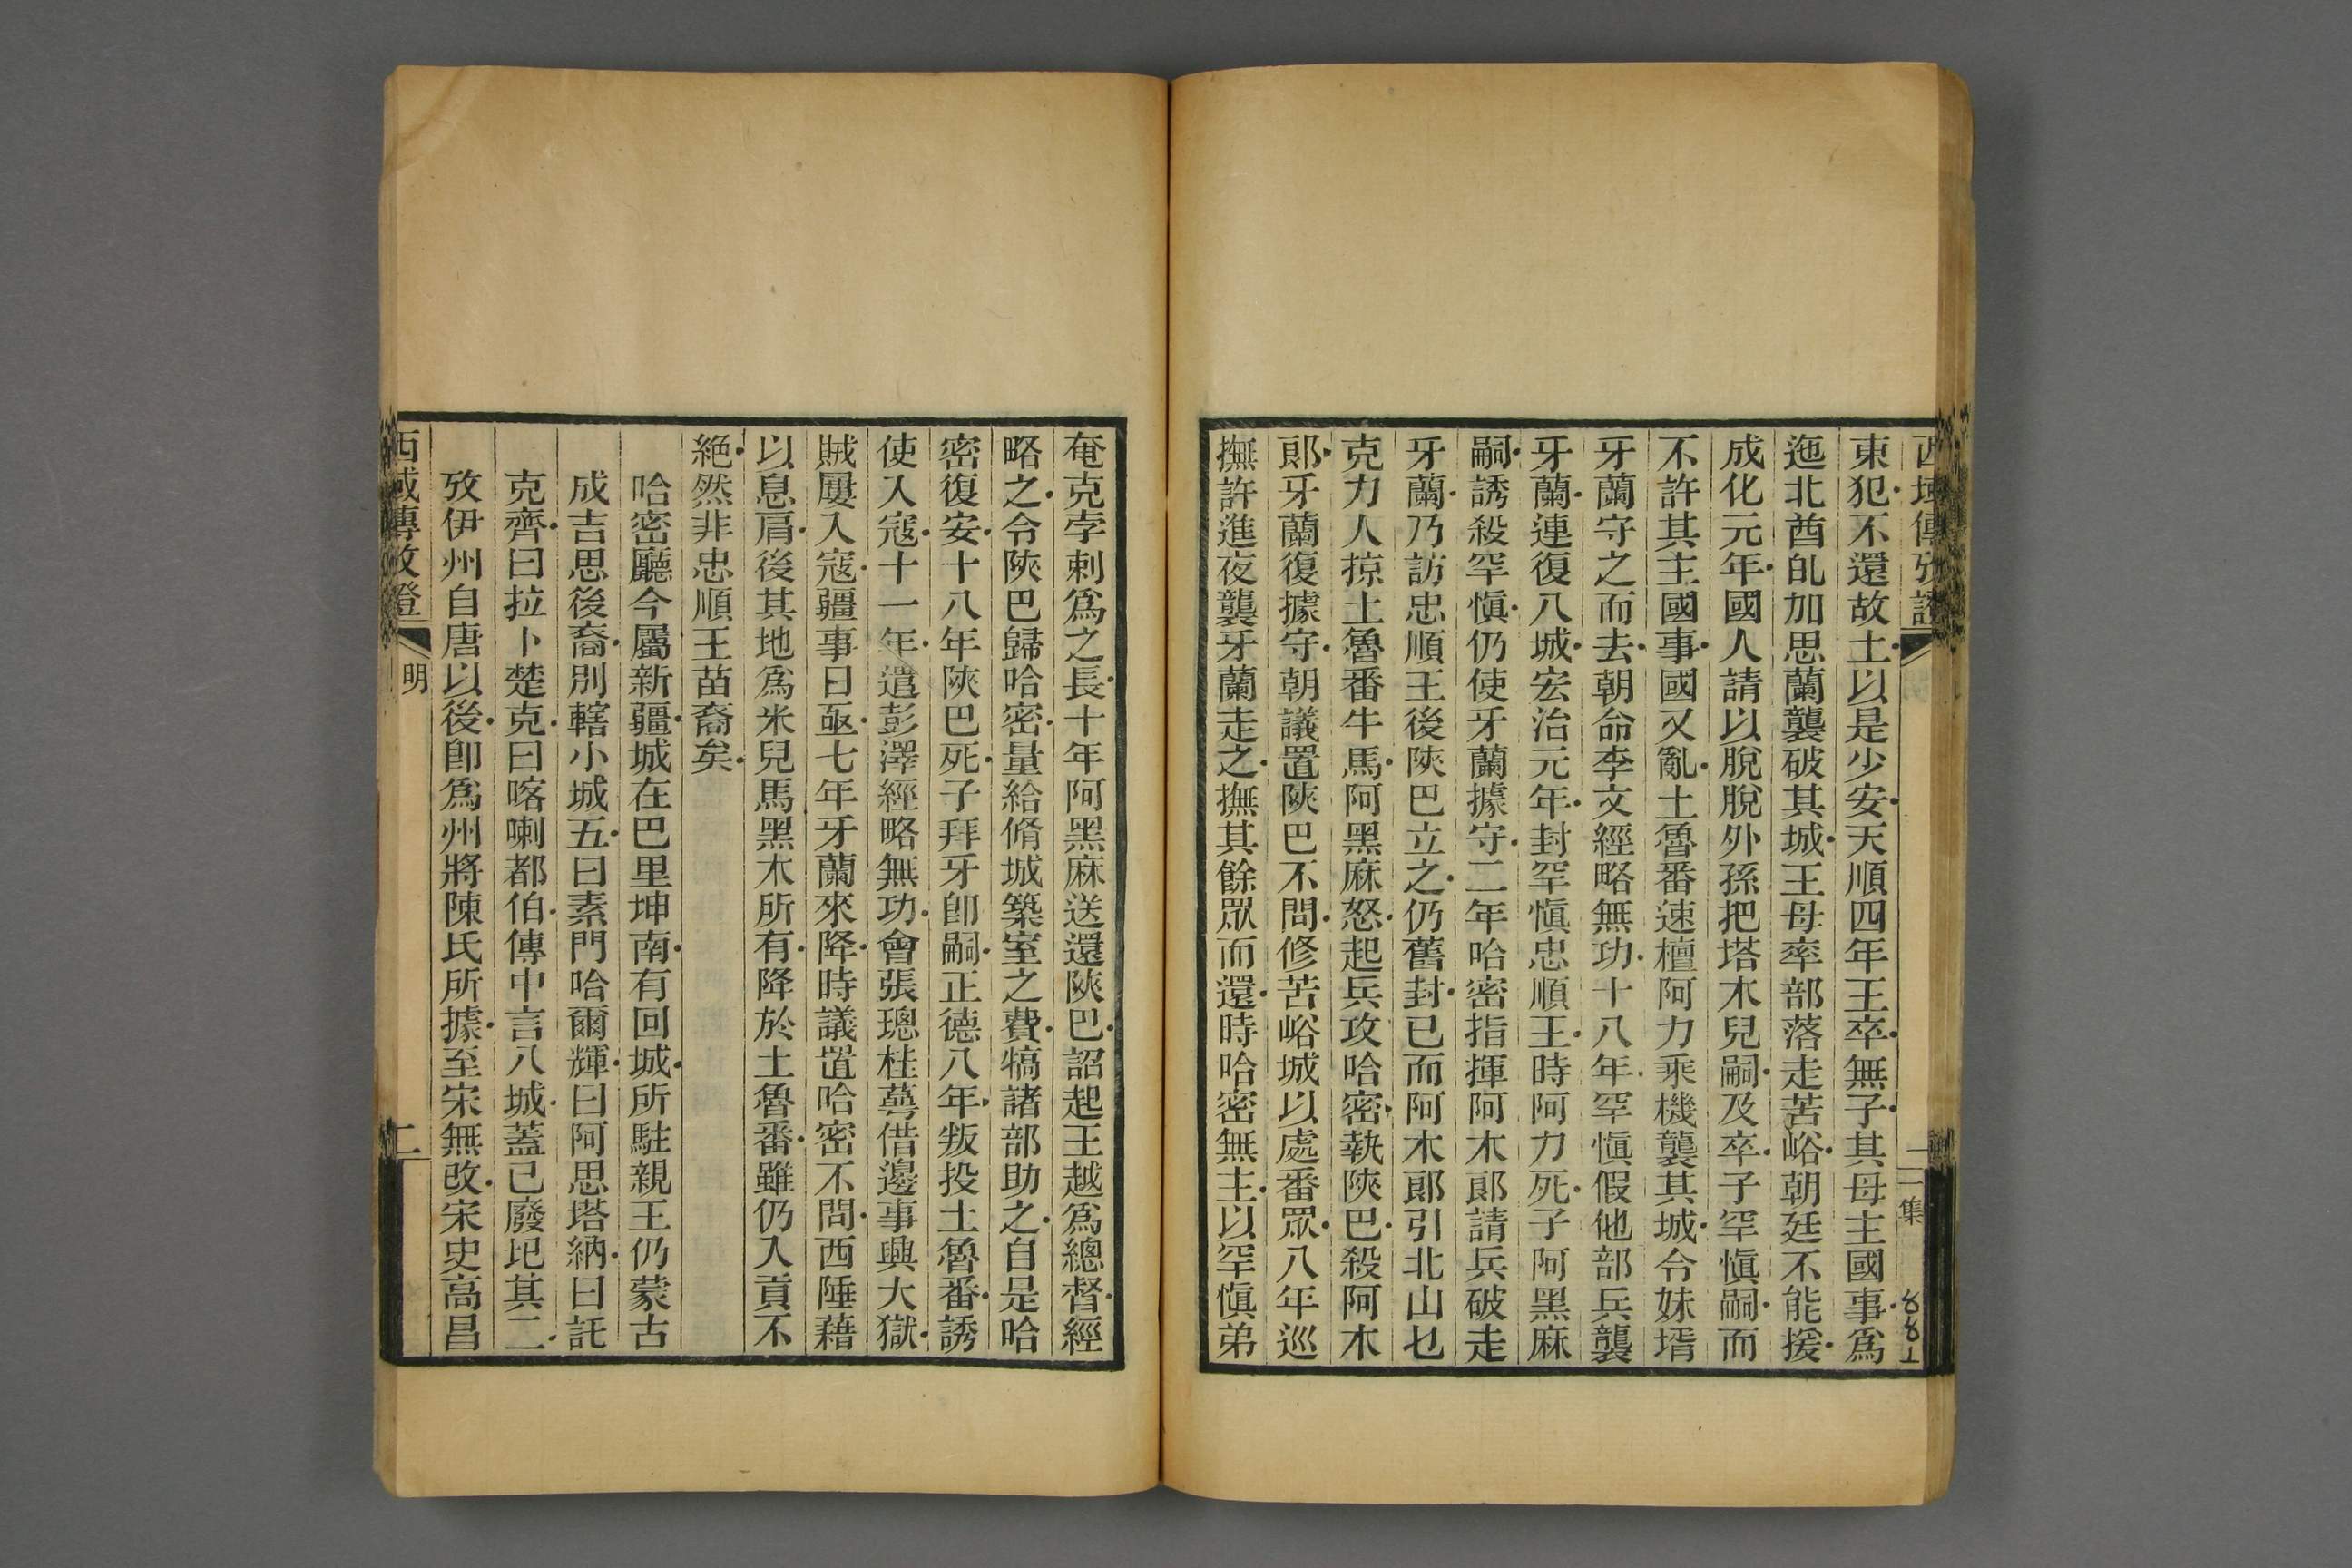 東犯不還故土以是少安天順四年王卒無子其母主國事爲
迤北酋癿加思蘭襲破其城王母率部落走苦峪朝廷不能援
成化元年國人請以脫脫外孫把塔木兒嗣及卒子罕愼嗣而
不許其主國事國又亂土魯番速檀阿力乘機襲其城令妹壻
牙蘭守之而去朝命李文經略無功十八年罕愼假他部兵襲
牙蘭連復八城宏治元年封罕愼忠順王時阿力死子阿黑麻
嗣誘殺罕愼仍使牙蘭據守二年哈密指揮阿木郎請兵破走
牙蘭乃訪忠順王後陝巴立之仍舊封已而阿木郎引北山乜
克力人掠土魯番牛馬阿黑麻怒起兵攻哈密執陝巴殺阿木
郎牙蘭復據守朝議置陝巴不問修苦峪城以處番眾八年巡
撫許進夜襲牙蘭走之撫其餘眾而還時哈密無主以罕愼弟
奄克孛剌爲之長十年阿黑麻送還陝巴詔起王越爲總督經
略之令陝巴歸哈密量給脩城築室之費犒諸部助之自是哈
密復安十八年陝巴死子拜牙卽嗣正德八年叛投土魯番誘
使入寇十一年遣彭澤經略無功會張璁桂萼借邊事興大獄
賊屢入寇疆事日亟七年牙蘭來降時議置哈密不問西陲藉
以息肩後其地爲米兒馬黑木所有降於土魯番雖仍入貢不
絕然非忠順王苗裔矣
哈密廳今屬新疆城在巴里坤南有回城所駐親王仍蒙古
成吉思後裔別轄小城五曰素門哈爾輝曰阿思塔納曰託
克齊曰拉卜楚克曰喀喇都伯傳中言八城蓋已廢圯其二
攷伊州自唐以後卽爲州將陳氏所據至宋無改宋史高昌
西域傳攷證
明
二